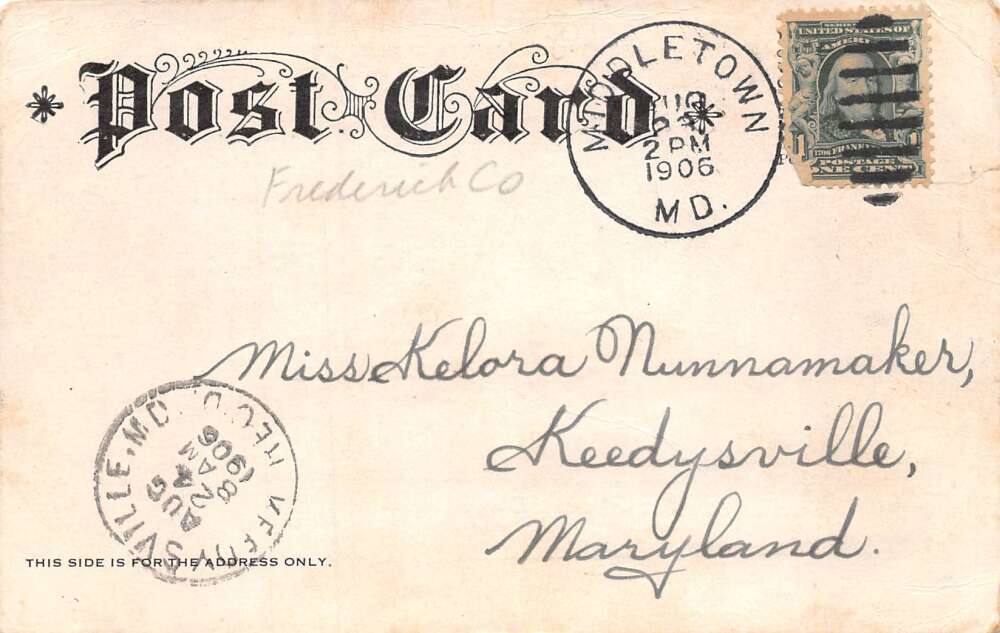 Post Card
MIDDLETOWN
2 PM
1906
MD.
SERIES 1902
UNITED STATES OF
AMERICA
FRANKLIN
POSTAGE
1 ONE CENT
Frederick Co
Miss Kelora Nunnamaker,
Keedysville,
Maryland.
KEEDYSVILLE, MD.
REC'D.
AUG
24
8 AM
1906
THIS SIDE IS FOR THE ADDRESS ONLY.